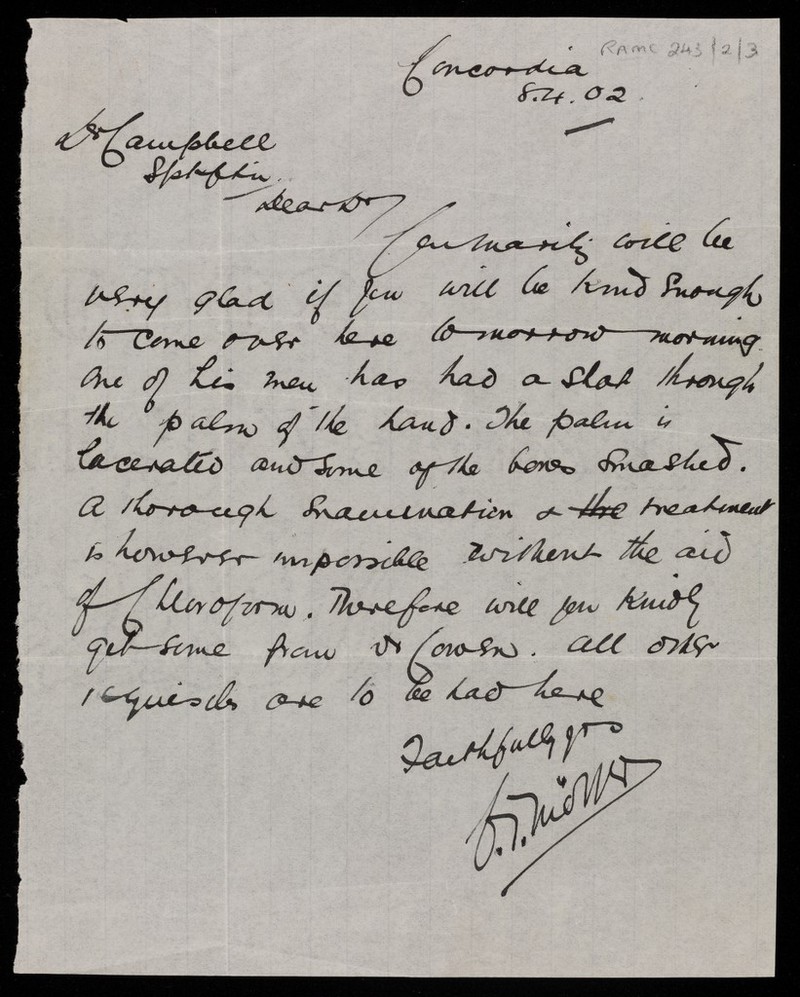 RAMC 243/2/3
Concordia
8.4.02
Dr Campbell
Spkftin
Dear Dr
Gen Maritz will be
very glad if you will be kind enough
to come over here tomorrow morning.
One of his men has had a shot through
the palm of the hand. The palm is
lacerated and some of the bones smashed.
A thorough examination & the treatment
is however impossible without the aid
of Chloroform. Therefore will you kindly
get some from Dr Cowen. All other
requisites are to be had here
Faithfully yrs